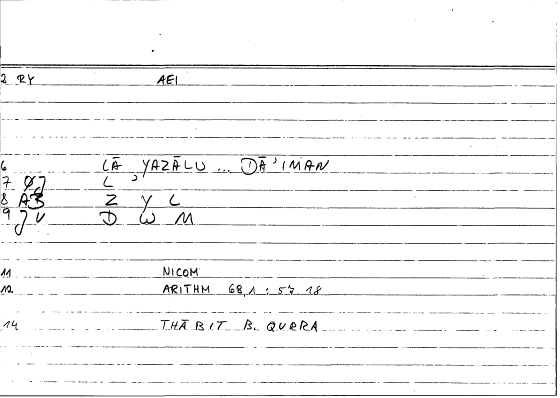 2 RY AEI
6 LĀ YAZĀLU ... DĀ'IMAN
7 L '
8 AB Z Y L
9 JU D W M
11 NICOM
12 ARITHM 68,1 : 57.18
14 THĀBIT B. QURRA